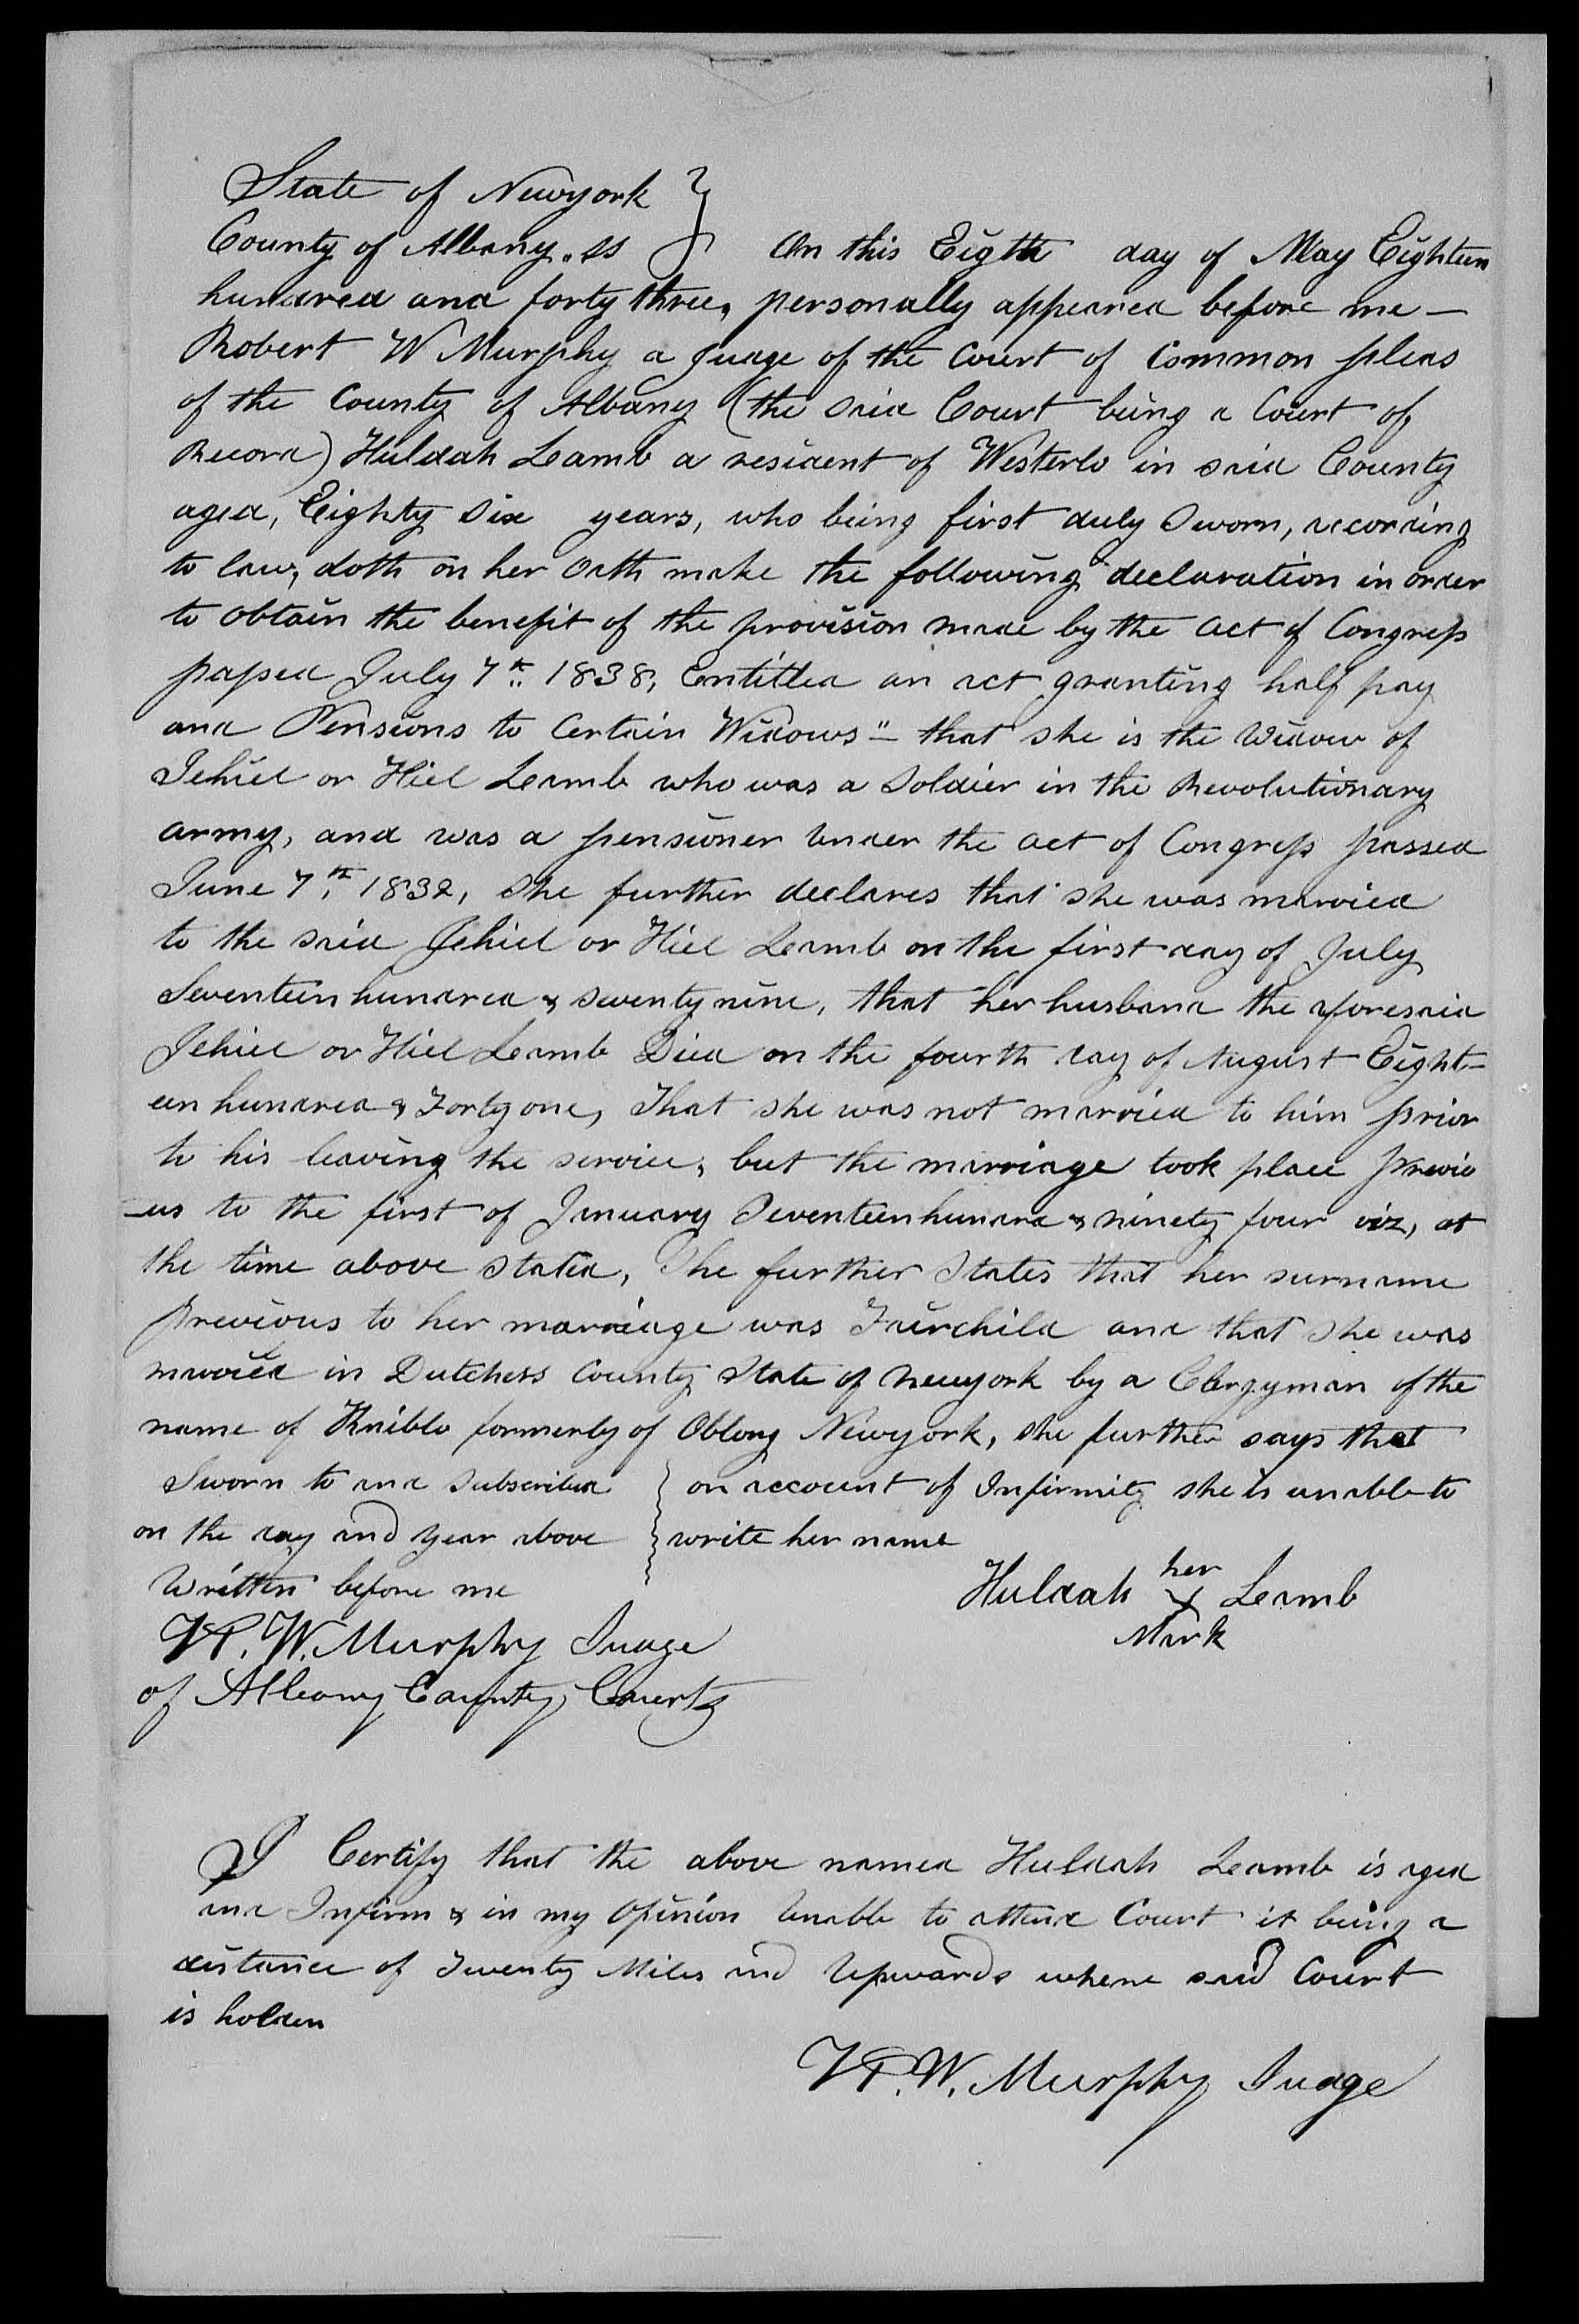 State of Newyork }
County of Albany. ss } On this Eigth day of May Eighteen
hundred and forty three, personally appeared before me —
Robert W Murphy a Judge of the Court of Common pleas
of the County of Albany (the said Court being a Court of
Record) Huldah Lamb a resident of Westerlo in said County
aged, Eighty Six years, who being first duly Sworn, according
to law, doth on her Oath make the following declaration in order
to obtain the benefit of the provision made by the act of Congress
passed July 7th 1838, Entitled an act granting half pay
and Pensions to Certain Widows" — that she is the Widow of
Jehiel or Hiel Lamb who was a Soldier in the Revolutionary
army, and was a pensioner Under the act of Congress passed
June 7th 1832, She further declares that she was married
to the said Jehiel or Hiel Lamb on the first day of July
Seventeen hundred & seventy nine, that her husband the aforesaid
Jehiel or Hiel Lamb Died on the fourth day of August Eight-
een hundred & Forty one, That she was not married to him prior
to his leaving the service, but the marriage took place previo
-us to the first of January Seventeen hundrd & ninety four viz, at
the time above stated, She further States that her surname
previous to her marriage was Fairchild and that She was
married in Dutchess County State of Newyork by a Clergyman of the
name of Kniblo formerly of Oblong Newyork, she further says that
Sworn to and Subscribed } on account of Infirmity she is unable to
on the day and year above } write her name
Written before me
Huldah her X Lamb
Mark
R. W. Murphy Judge
of Albany County Courts
I Certify that the above named Huldah Lamb is aged
and Infirm & in my Opinion Unable to attend Court it being a
distance of Twenty Miles and Upwards where said Court
is holden
R. W. Murphy Judge